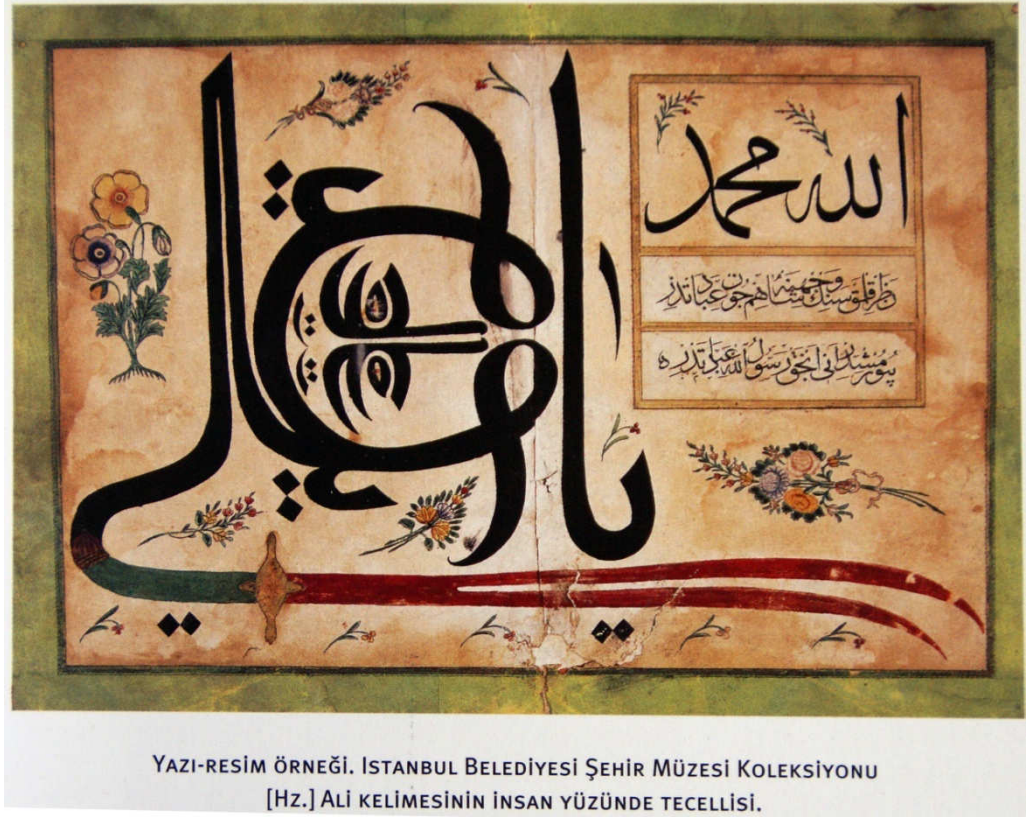 يا علي
الله محمد
نظر قلمق سنك وجهنه شاهم چون عبادتدر
بيورمشدر انى رسول الله عبادتدر
YAZI-RESİM ÖRNEĞİ. ISTANBUL BELEDİYESİ ŞEHİR MÜZESİ KOLEKSİYONU
[HZ.] ALİ KELİMESİNİN İNSAN YÜZÜNDE TECELLİSİ.